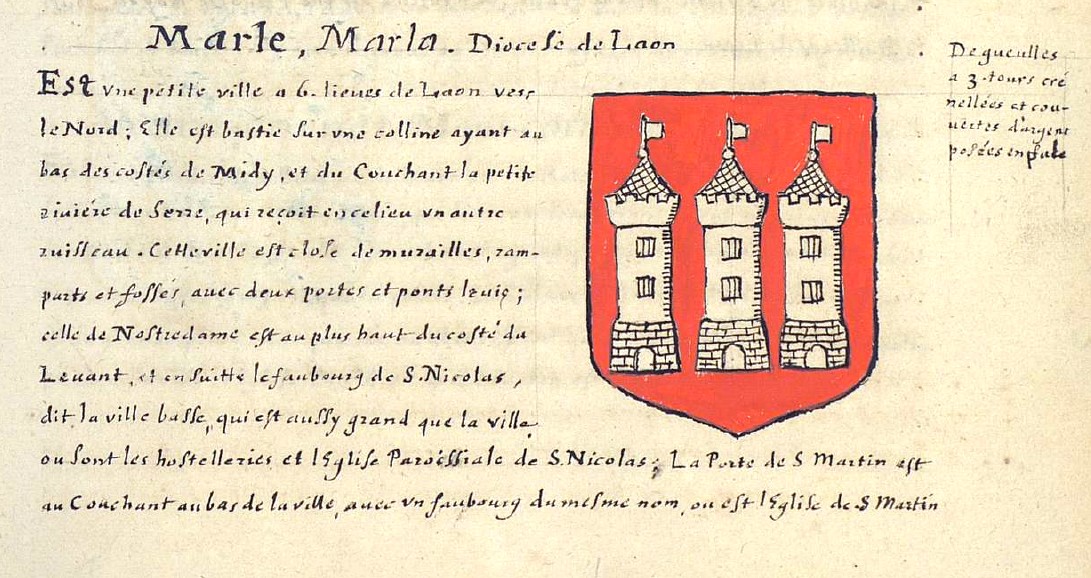 Marle, Marla. Diocese de Laon
Est vne petite ville a 6. lieues de Laon vers
le Nord; Elle est bastie sur vne colline ayant au
bas des costés de Midy, et du Couchant la petite
riviére de Serre, qui reçoit en ce lieu vn autre
ruisseau. Cette ville est close de murailles, ram-
parts et fossés, avec deux portes et ponts levis;
celle de Nostredame est au plus haut du costé du
Levant, et en suitte le faubourg de S. Nicolas,
dit la ville basse, qui est aussy grand que la ville,
ou sont les hostelleries et l'Eglise Paroissiale de S. Nicolas; La Porte de S Martin est
au Couchant au bas de la ville, avec vn faubourg du mesme nom, ou est l'Eglise de S Martin
De gueulles
a 3. tours cré
nellées et cou-
vertes d'argent
posées en fale